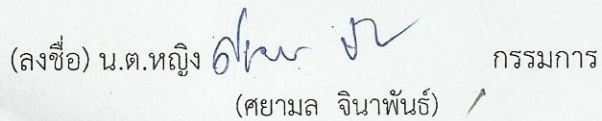 (ลงชื่อ) น.ต.หญิง กรรมการ
(ศยามล จินาพันธ์)